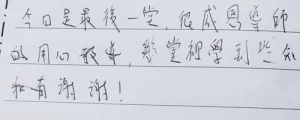 今日是最後一堂，很感恩導師
的用心教導，都堂初學到些知
和有謝謝！